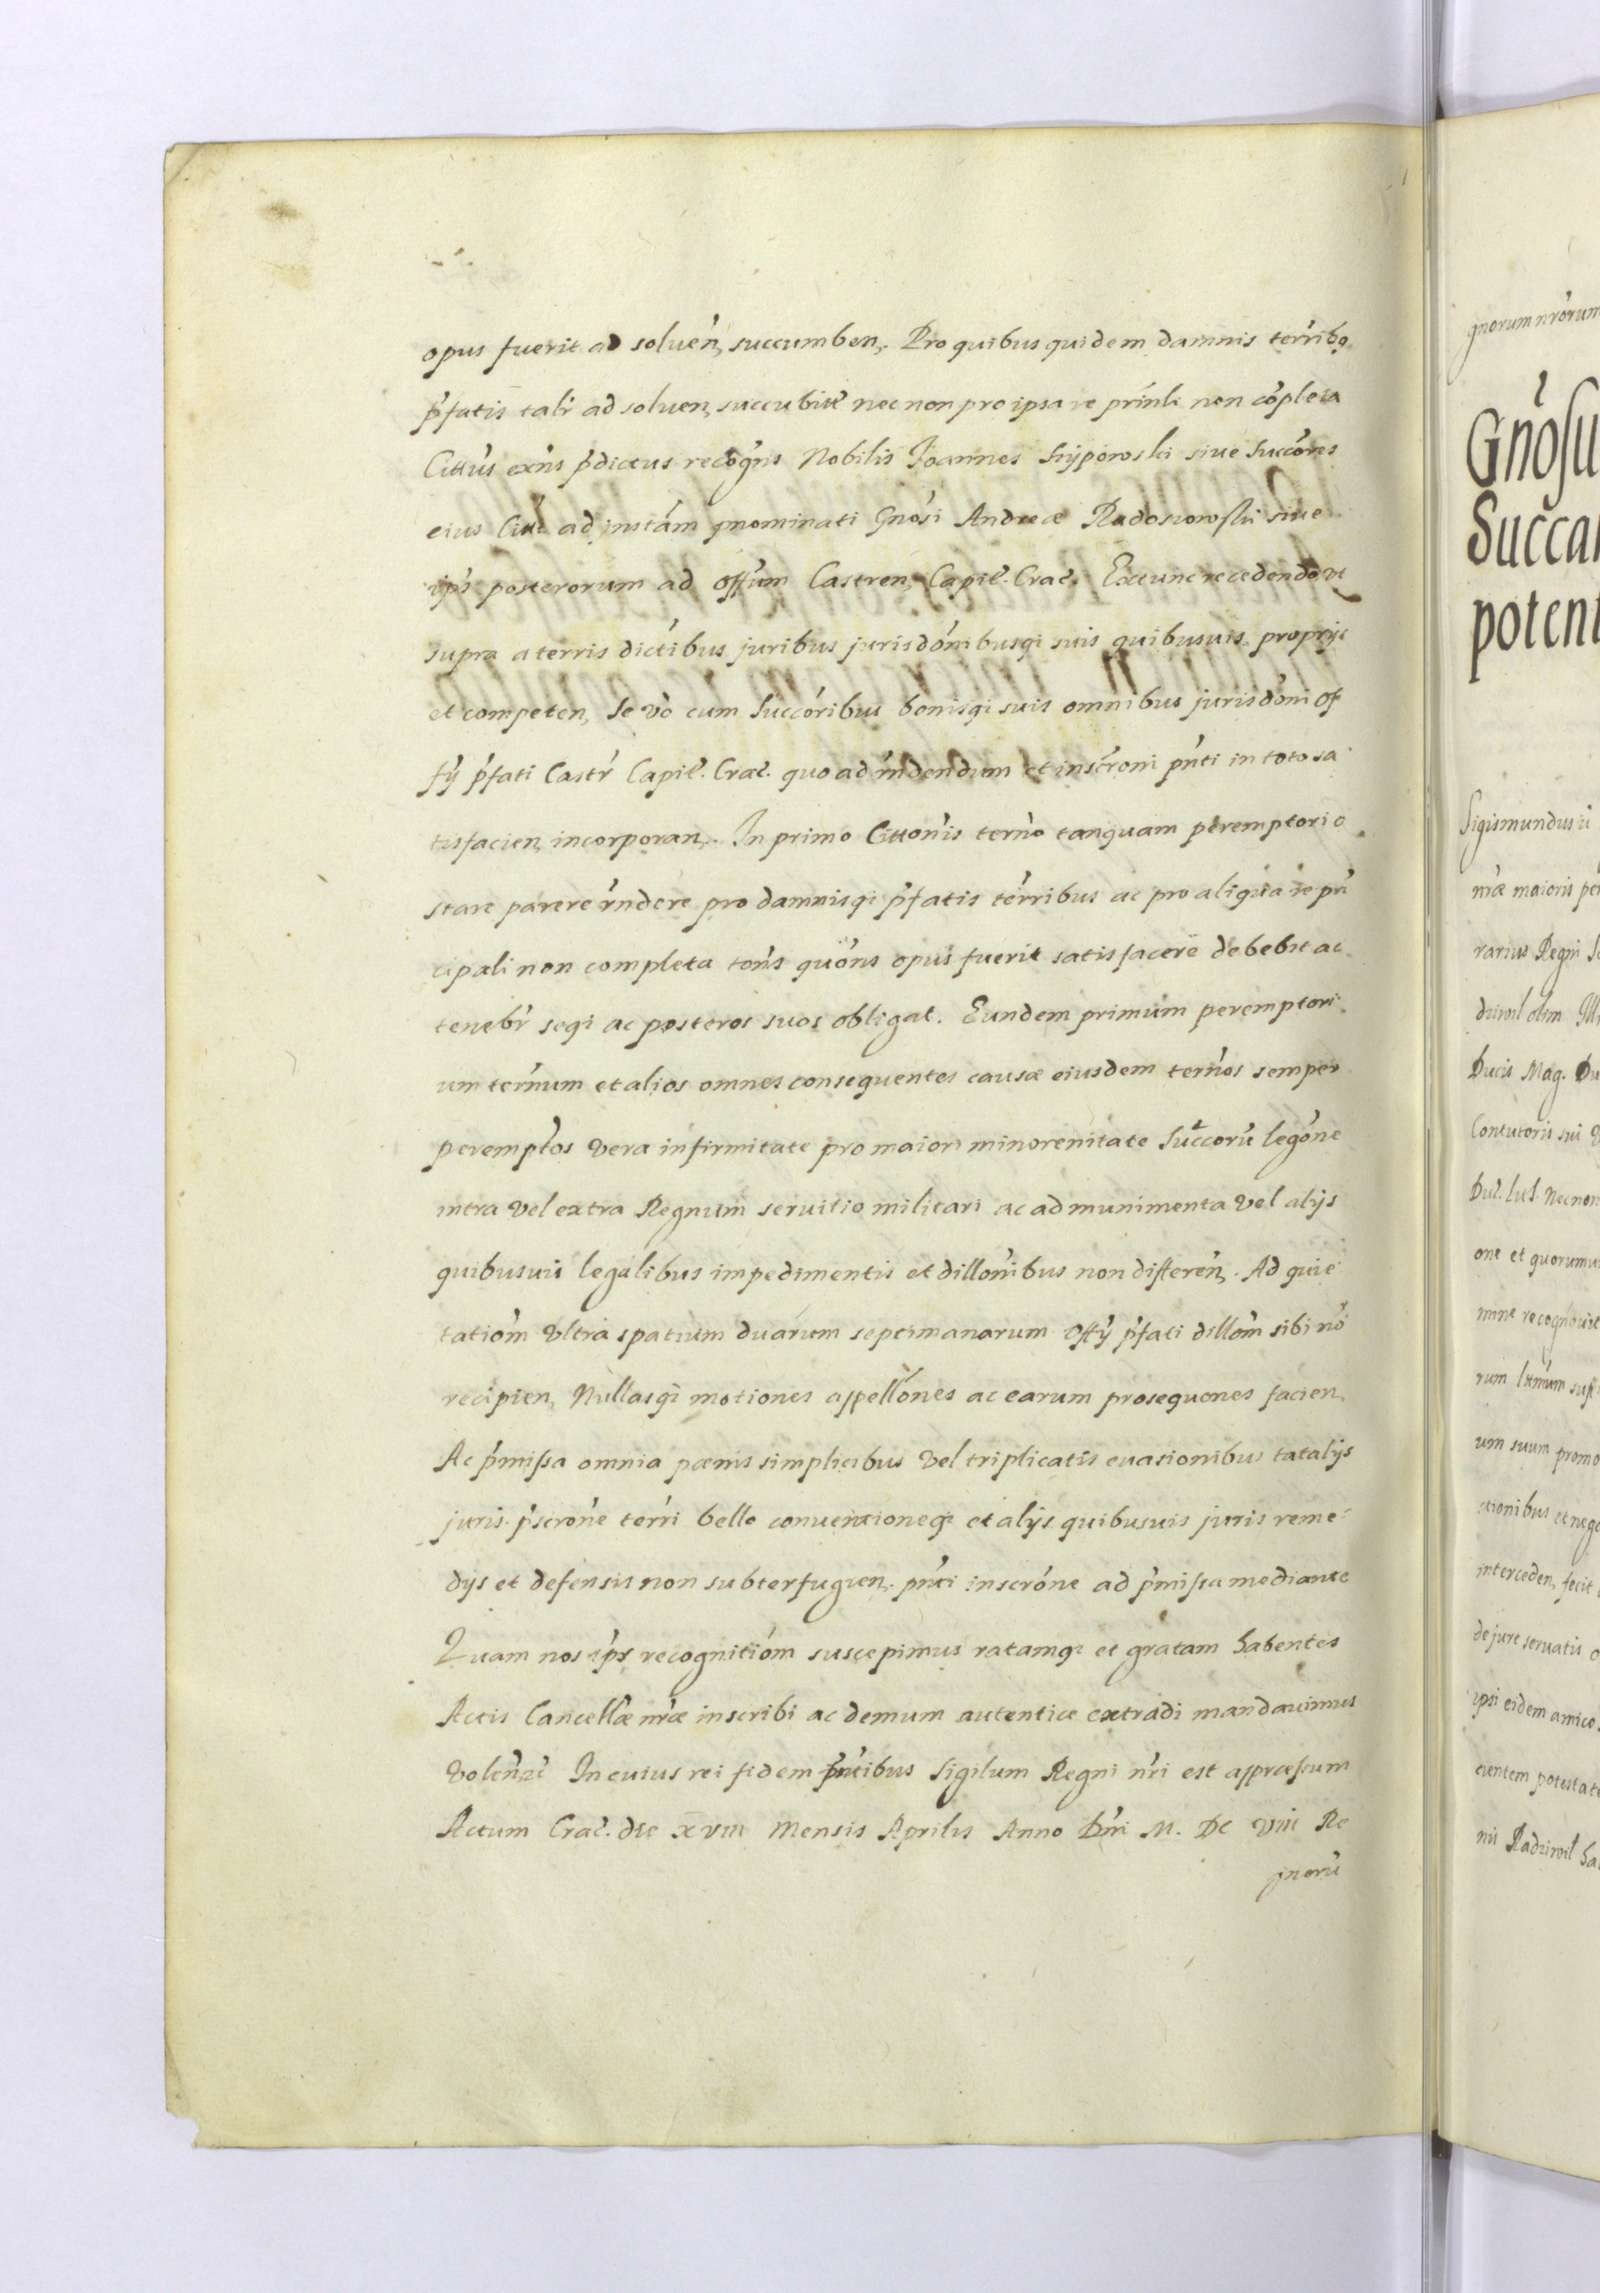 opus fuerit ad soluen̄, succumben̄. Pro quibus quidem damnis terribq
p̄fatis talr̄ ad soluen̄, succubite nec non pro ipsa re prīnli non cōpleta
Cittūs exn̄s p̄dictus recōgn̄s Nobilis Joannes sive Succōres
eius Citt ad instām Gnōsi Andreæ Radoszowski siue
ipi posterorum ad Offūm Castren̄, Capit̄. Crac̄. Extunc recedendo vt
supra a terris dictibus juribus jurisdōnibusqi suis quibusuis proprijs
et competen̄, Se vō cum Succōribus bonisqi suis omnibus jurisdōni Of
fij p̄fati Castr̄ Capit̄. Crac̄. quo ad rn̄dendum et inscr̄oni pn̄ti in toto sa
tisfacien̄ incorporan̄. In primo Cittonis tern̄o tanquam peremptorio
stare parere rn̄dere pro damnisqi p̄fatis terribus ac pro aliqua re prn̄
cipali non completa ton̄s quōns opus fuerit satisfacere debebit ac
tenebr̄ seqi ac posteros suos obligat. Eundem primum peremptori
um tern̄um et alios omnes consequentes causæ eiusdem tern̄os semper
peremptōs vera infirmitate pro maiori minorenitate Succorū legōne
intra vel extra Regnum seruitio militari ac ad munimenta vel alijs
quibusuis legalibus impedimentis et dillon̄ibus non differen̄. Ad quie
tatiōm vltra spatium duarum septimanarum Offij p̄fati dillōm sibi nō
recipien̄, Nullasqi motiones appellōnes ac earum prosequones facien̄
Ac p̄missa omnia pœnis simplicibus vel triplicatis euasionibus tatalijs
juris p̄scrōne terri bello conuentioneqi et alijs quibusuis juris reme
dijs et defensis non subterfugien̄. pn̄ti inscrōne ad p̄missa mediante
Quam nos ipr̄ recognitiōm suscepimus ratamqi et gratam habentes
Actis Cancellæ nr̄æ inscribi ac demum autentice extradi mandauimus
In cuius rei fidem pn̄tibus Sigilum Regni nr̄i est appressum
Actum Crac̄. die xviii Mensis Aprilis Anno Dn̄i M. DC viii Re
gnorū
gnorum nrōrum
Gnōsu
Succa
potent
Sigismundus
nr̄æ maioris
rarius Regni
olim
Ducis Mag. Du
Contutoris sui
Duc. Necnon
one et quorumu
recognouit
um suum promo
interceden̄, fecit
de jure seruatis
ipsi eidem amico
potestate
Radziwil